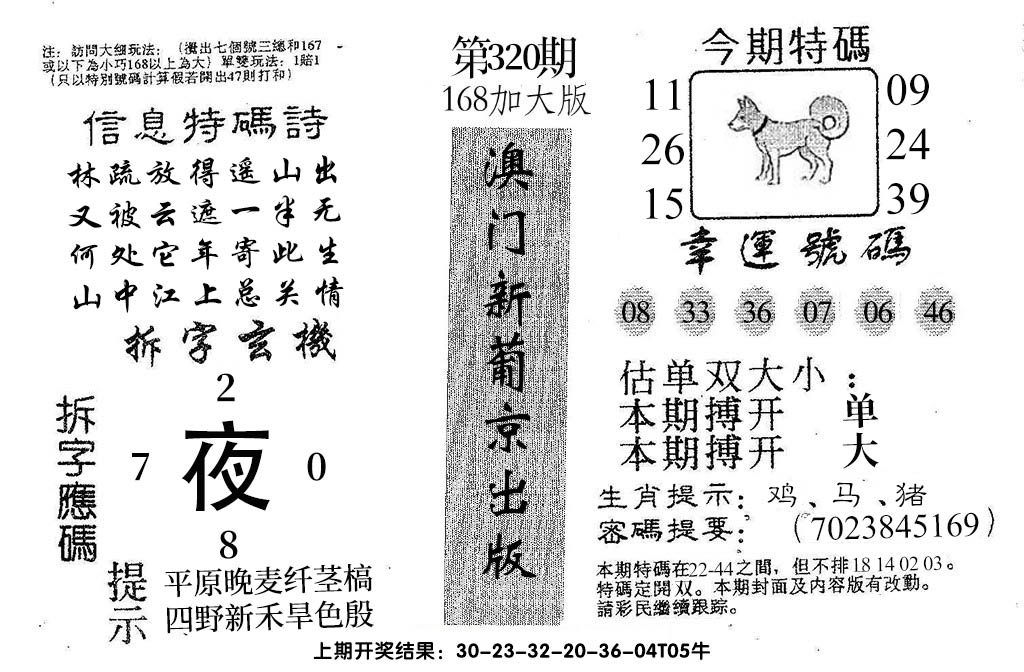 注：訪問大細玩法：（攪出七個號三總和167
或以下為小巧168以上為大）單雙玩法：1賠1
（只以特別號碼計算假若開出47則打和）
信息特碼詩
林疏放得遥山出
又被云遮一半无
何处它年寄此生
山中江上总关情
拆字玄機
拆字應碼
2
7 夜 0
8
提示
平原晚麦纤茎槁
四野新禾旱色殷
第320期
168加大版
澳门新葡京出版
今期特碼
11 09
26 24
15 39
幸運號碼
08 33 36 07 06 46
估单双大小：
本期搏开 单
本期搏开 大
生肖提示：鸡、马、猪
密碼提要：（7023845169）
本期特碼在22-44之間，但不排18 14 02 03。
特碼定開双。本期封面及内容版有改動。
請彩民繼續跟踪。
上期开奖结果：30-23-32-20-36-04T05牛